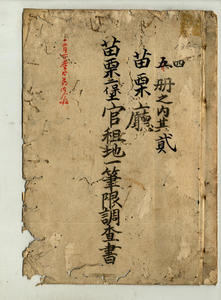 四
五册之内其貳
苗栗廳
苗栗堡官租地一筆限調查書